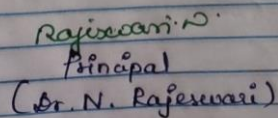 Rajiswari.N.
Principal
(Dr. N. Rajeswari)